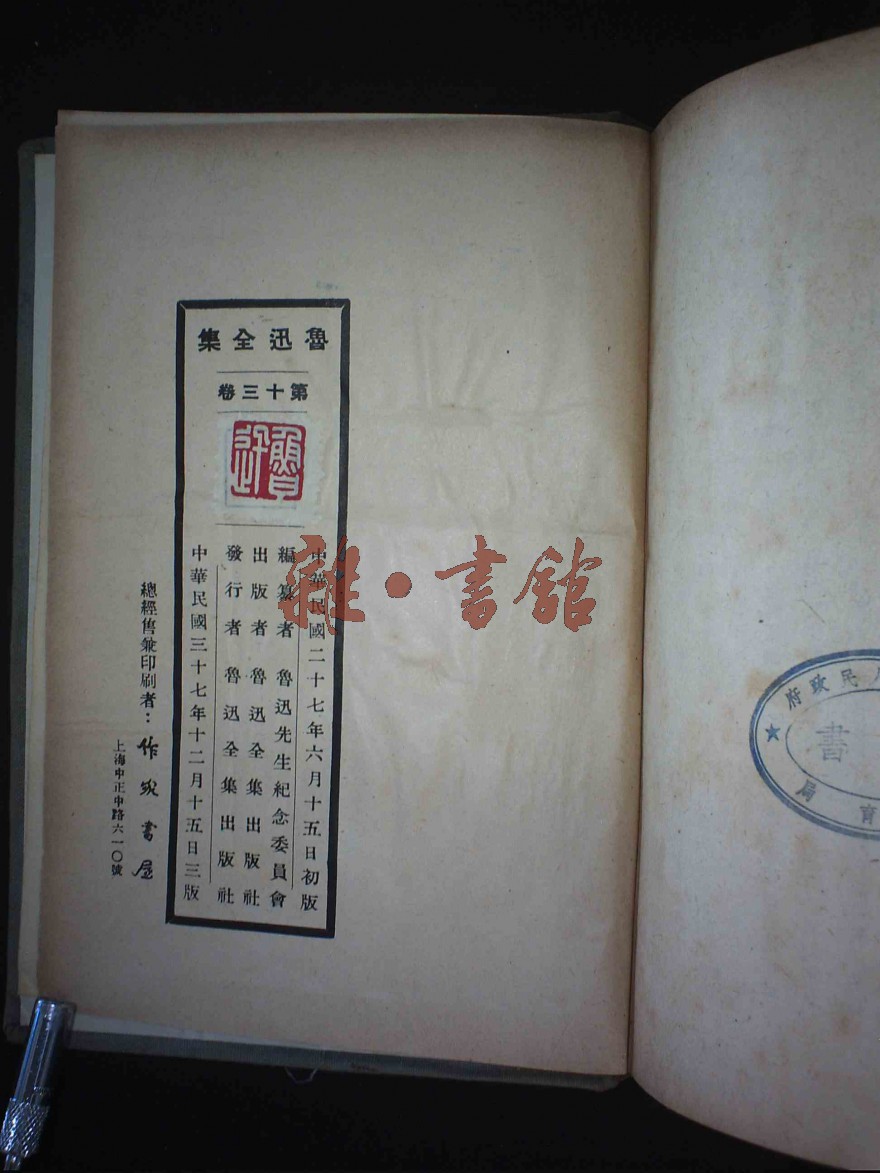 魯迅全集
第十三卷
魯迅
中華民國二十七年六月十五日初版
編纂者 魯迅先生紀念委員會
出版者 魯迅全集出版社
發行者 魯迅全集出版社
中華民國三十七年十二月十五日三版
總經售兼印刷者：作家書屋
上海中正中路六一〇號
雜·書館
民政府
書
育局